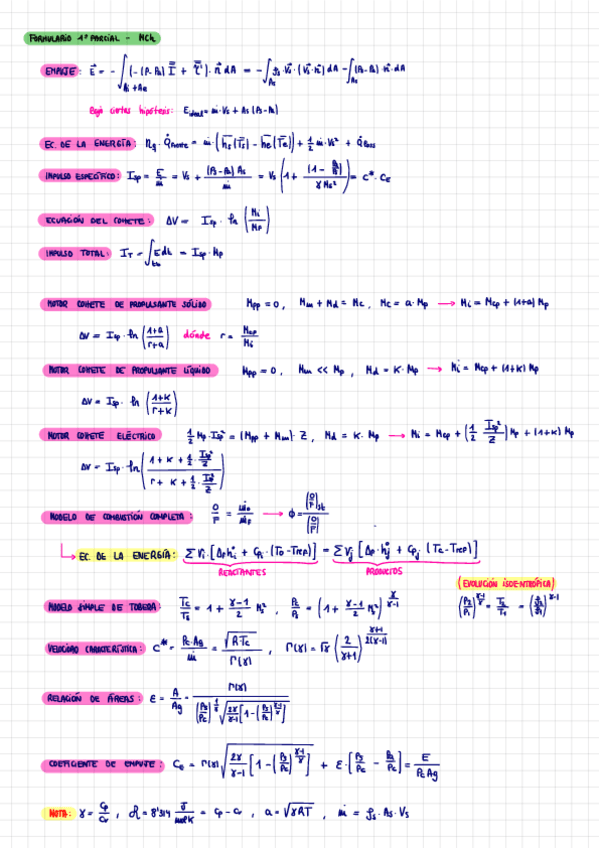 FORMULARIO 1º PARCIAL - MCh
EMPUJE: E⃗ = - ∫_{Ai+As} (-(P-Pa) I̿ + τ̿')·n⃗ dA = - ∫_{As} ρs·V⃗s·(V⃗s·n⃗) dA - ∫_{As} (Ps-Pa)·n⃗ dA
Bajo ciertas hipótesis: E_ideal = ṁ·Vs + As (Ps-Pa)
EC. DE LA ENERGÍA: ηg·Q̇fuente = ṁ·(h̄s(Ts) - h̄e(Te)) + 1/2 ṁ·Vs² + Q̇
IMPULSO ESPECÍFICO: Isp = E/ṁ = Vs + (Ps-Pa) As/ṁ = Vs (1 + (1 - Pa/Ps)/(γ Ms²)) = C*·CE
ECUACIÓN DEL COHETE: ΔV = Isp · ln (Mi/MF)
IMPULSO TOTAL: IT = ∫_{tb} E dt = Isp · Mp
MOTOR COHETE DE PROPULSANTE SÓLIDO Mpp = 0, Mm + Md = Mc, Mc = a·Mp → Mi = Mcp + (1+a) Mp
ΔV = Isp · ln ((1+a)/(r+a)) dónde r = Mcp/Mi
MOTOR COHETE DE PROPULSANTE LÍQUIDO Mpp = 0, Mm << Mp, Md = K·Mp → Mi = Mcp + (1+K) Mp
ΔV = Isp · ln ((1+K)/(r+K))
MOTOR COHETE ELÉCTRICO 1/2 Mp·Isp² = (Mpp + Mm)·Z, Md = K·Mp → Mi = Mcp + (1/2 Isp²/Z) Mp + (1+K) Mp
ΔV = Isp · ln ((1 + K + 1/2 · Isp²/Z)/(r + K + 1/2 · Isp²/Z))
MODELO DE COMBUSTIÓN COMPLETA: O/F = ṁo/ṁF → φ = (O/F)st/(O/F)
EC. DE LA ENERGÍA: Σ νi·[ΔFhi° + Cpi·(To - Tref)] = Σ νj [ΔF·hj° + Cpj (Tc - Tref)]
REACTANTES PRODUCTOS
(EVOLUCIÓN ISOENTRÓPICA)
MODELO SIMPLE DE TOBERA: Tc/Ts = 1 + (γ-1)/2 Ms², Pc/Ps = (1 + (γ-1)/2 Ms²)^(γ/(γ-1)) (P2/P1)^((γ-1)/γ) = T2/T1 = (ρ2/ρ1)^(γ-1)
VELOCIDAD CARACTERÍSTICA: C* = Pc·Ag/ṁ = √(R·Tc)/Γ(γ), Γ(γ) = √γ (2/(γ+1))^((γ+1)/(2(γ-1)))
RELACIÓN DE ÁREAS: ε = A/Ag = Γ(γ)/((Ps/Pc)^(1/γ) √(2γ/(γ-1) [1-(Ps/Pc)^((γ-1)/γ)]))
COEFICIENTE DE EMPUJE: Ce = Γ(γ) √(2γ/(γ-1) [1-(Ps/Pc)^((γ-1)/γ)]) + ε·[Ps/Pc - Pa/Pc] = E/(Pc Ag)
NOTA: γ = Cp/Cv, R = 8'314 J/molK = Cp - Cv, a = √γRT, ṁ = ρs·As·Vs